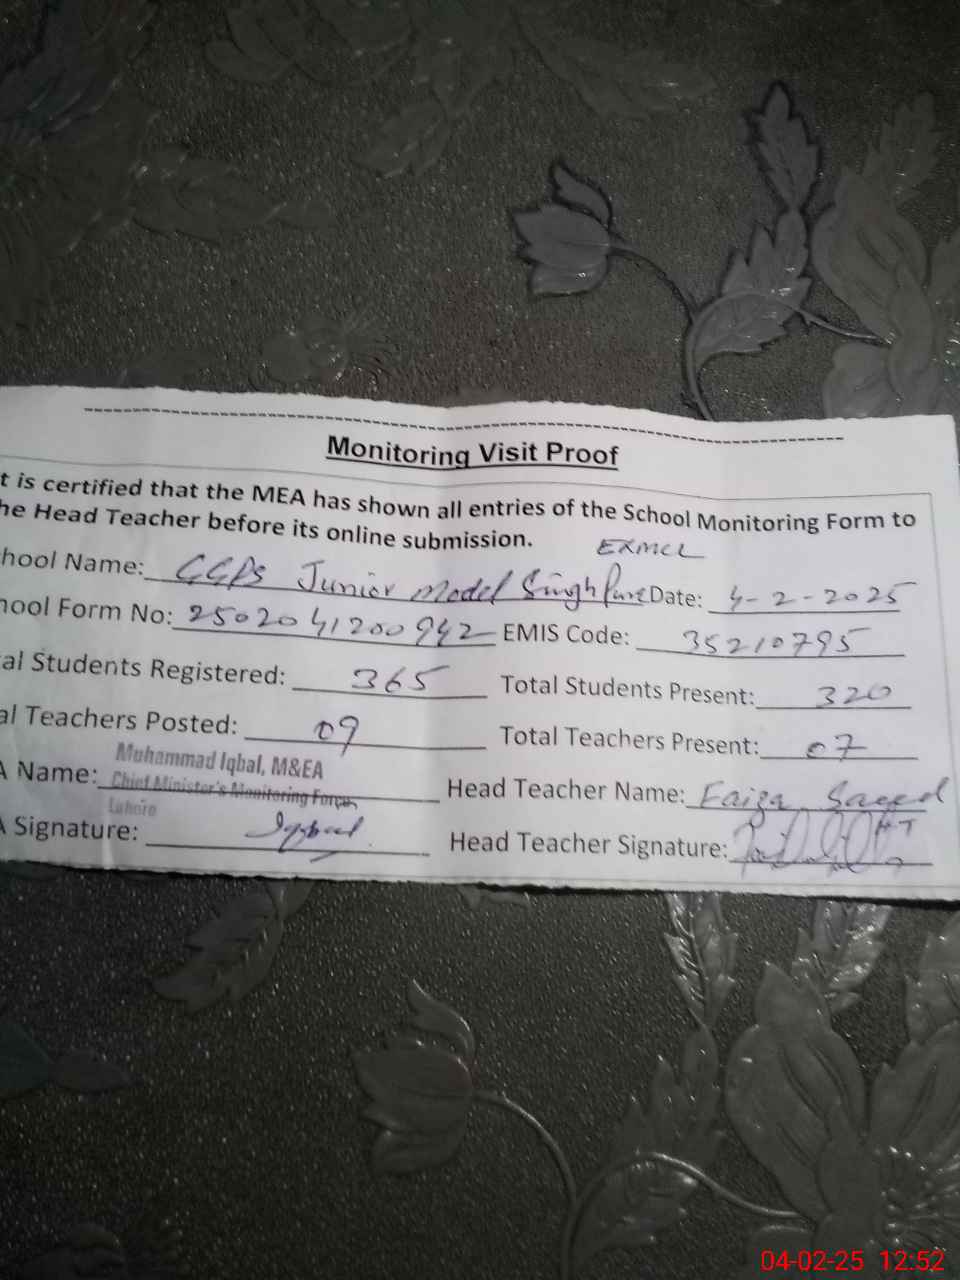 Monitoring Visit Proof
t is certified that the MEA has shown all entries of the School Monitoring Form to
he Head Teacher before its online submission.
EXMCL
hool Name: GGPS Junior Model Singh Pura Date: 4-2-2025
hool Form No: 2502041200942 EMIS Code: 35210795
al Students Registered: 365 Total Students Present: 320
al Teachers Posted: 09 Total Teachers Present: 07
A Name: Muhammad Iqbal, M&EA
Chief Minister's Monitoring Force,
Lahore
Head Teacher Name: Faiza Saeed
A Signature: Head Teacher Signature: HT
04-02-25 12:52